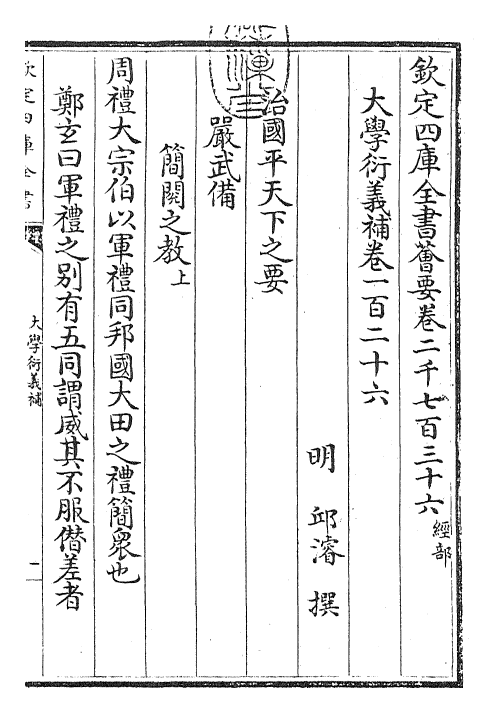 欽定四庫全書薈要卷二千七百三十六 經部
大學衍義補卷一百二十六
明 邱濬 撰
治國平天下之要
嚴武備
簡閱之教上
周禮大宗伯以軍禮同邦國大田之禮簡衆也
鄭玄曰軍禮之别有五同謂威其不服僣差者
欽定四庫全書
大學衍義補
一